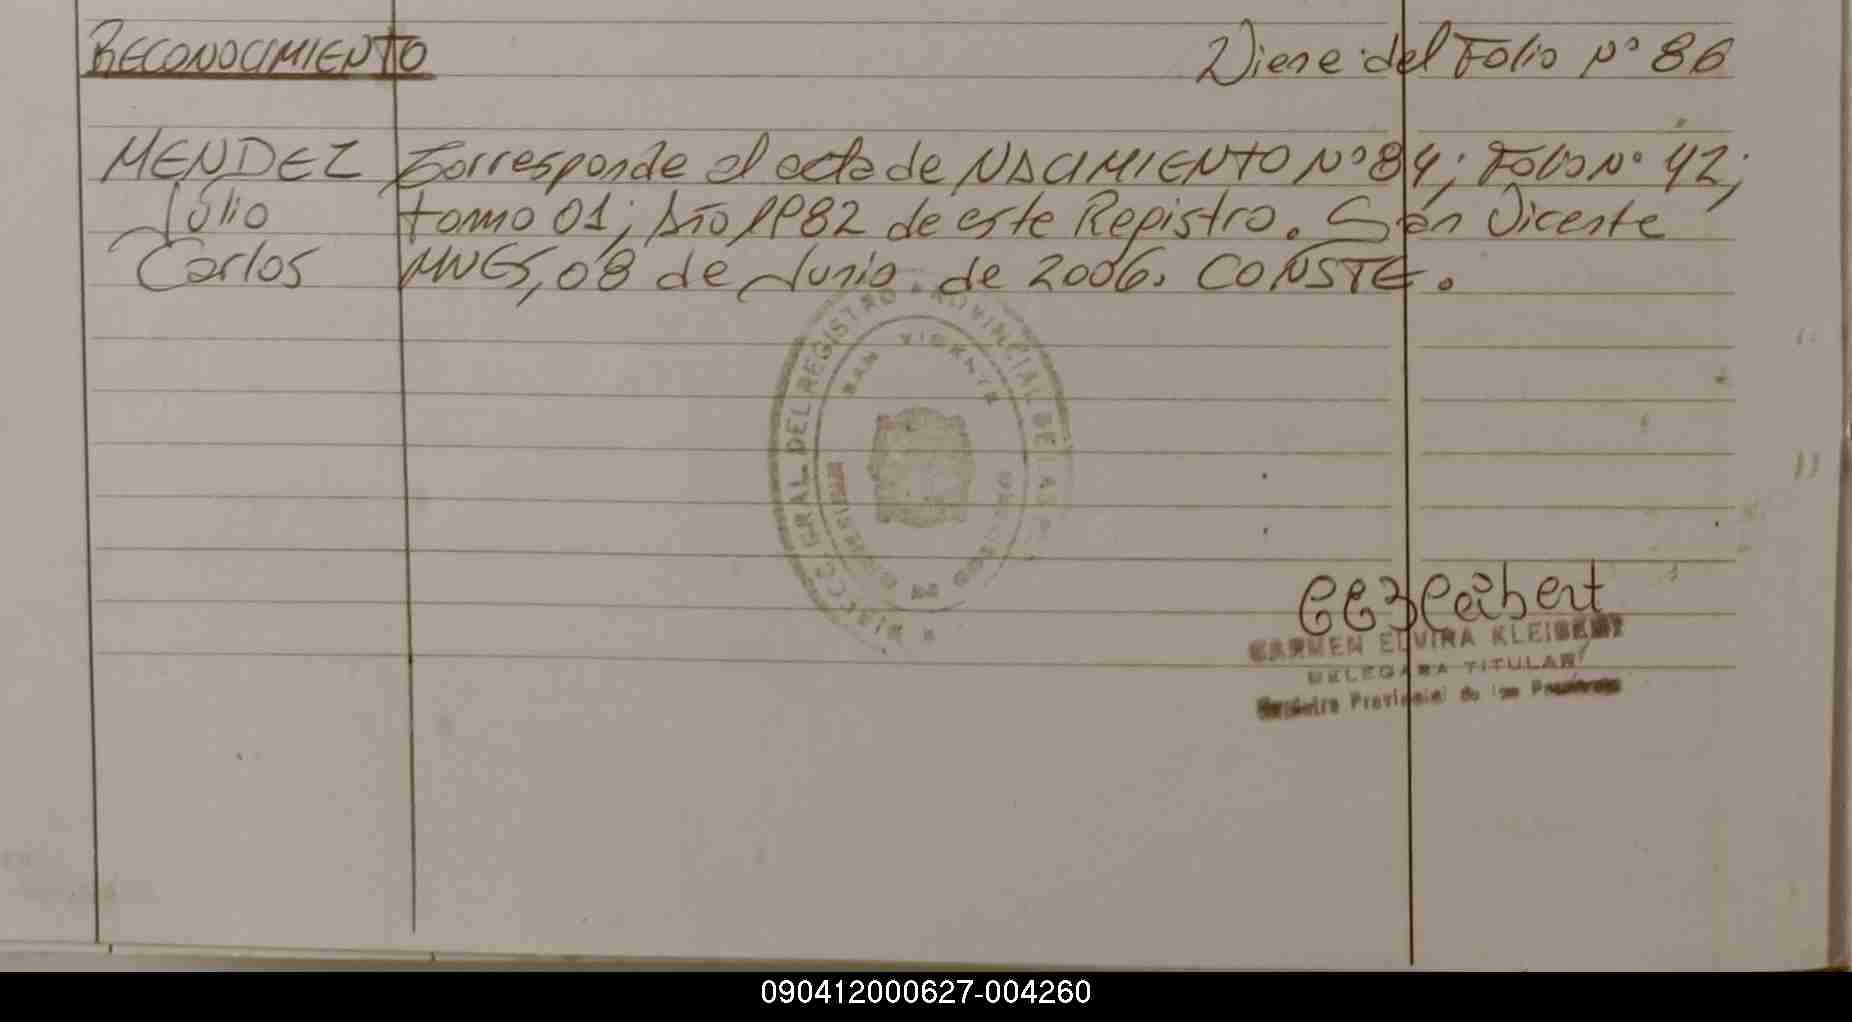 RECONOCIMIENTO
Viene del Folio Nº 86
MENDEZ
Julio
Carlos
Corresponde al acta de NACIMIENTO Nº 84; Folio Nº 42;
tomo 01; Año 1982 de este Registro. San Vicente
MNES, 08 de Junio de 2006. CONSTE.
GRAL. DEL REGISTRO PROVINCIAL DE LAS
SAN VICENTE
CARMEN ELVIRA KLEIBERT
DELEGADA TITULAR
Provincial de las
090412000627-004260